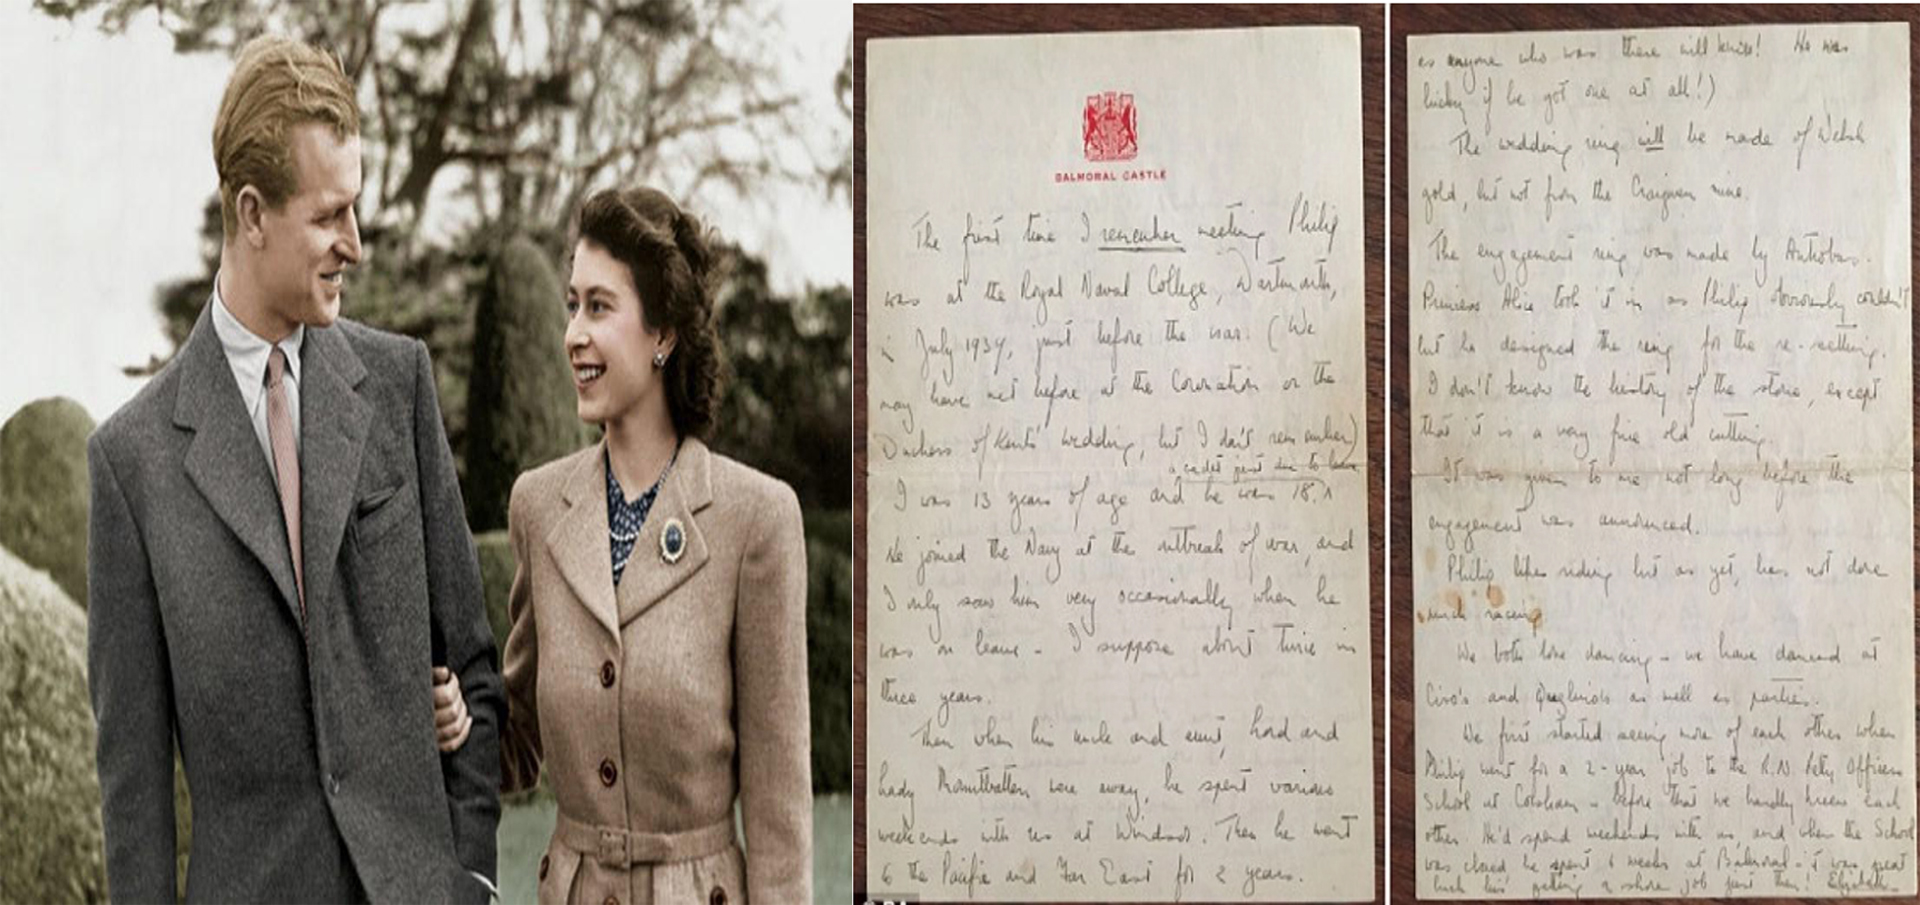 BALMORAL CASTLE
The first time I remember meeting Philip
was at the Royal Naval College, Dartmouth,
in July 1939, just before the war. (We
may have met before at the Coronation or the
Duchess of Kent's wedding, but I don't remember)
a cadet just due to leave
I was 13 years of age and he was 18.
He joined the Navy at the outbreak of war, and
I only saw him very occasionally when he
was on leave - I suppose about twice in
three years.
Then when his uncle and aunt, Lord and
Lady Mountbatten were away, he spent various
weekends with us at Windsor. Then he went
to the Pacific and Far East for 2 years.
as anyone who was there will know! He was
lucky if he got one at all!)
The wedding ring will be made of Welsh
gold, but not from the Craigwen mine.
The engagement ring was made by Antrobus.
Princess Alice took it in as Philip obviously couldn't
but he designed the ring for the re-setting.
I don't know the history of the stone, except
that it is a very fine old cutting.
It was given to me not long before the
engagement was announced.
Philip likes riding but as yet, has not done
much racing
We both love dancing - we have danced at
Ciro's and Quaglino's as well as parties.
We first started seeing more of each other when
Philip went for a 2-year job to the R.N. Petty Officers
School at Corsham - before that we hardly knew each
other. He'd spend weekends with us, and when the School
was closed he spent 6 weeks at Balmoral - it was great
luck his getting a shore job just then! Elizabeth